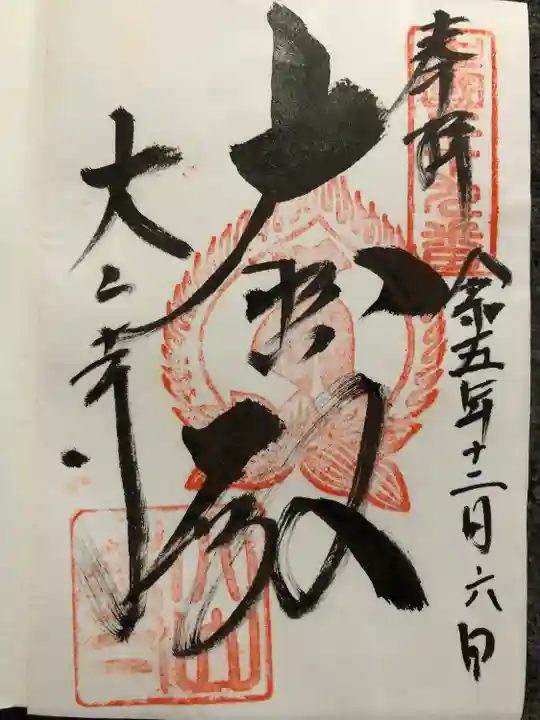 奉拝
令和五年十二月六日
大悲殿
大山寺